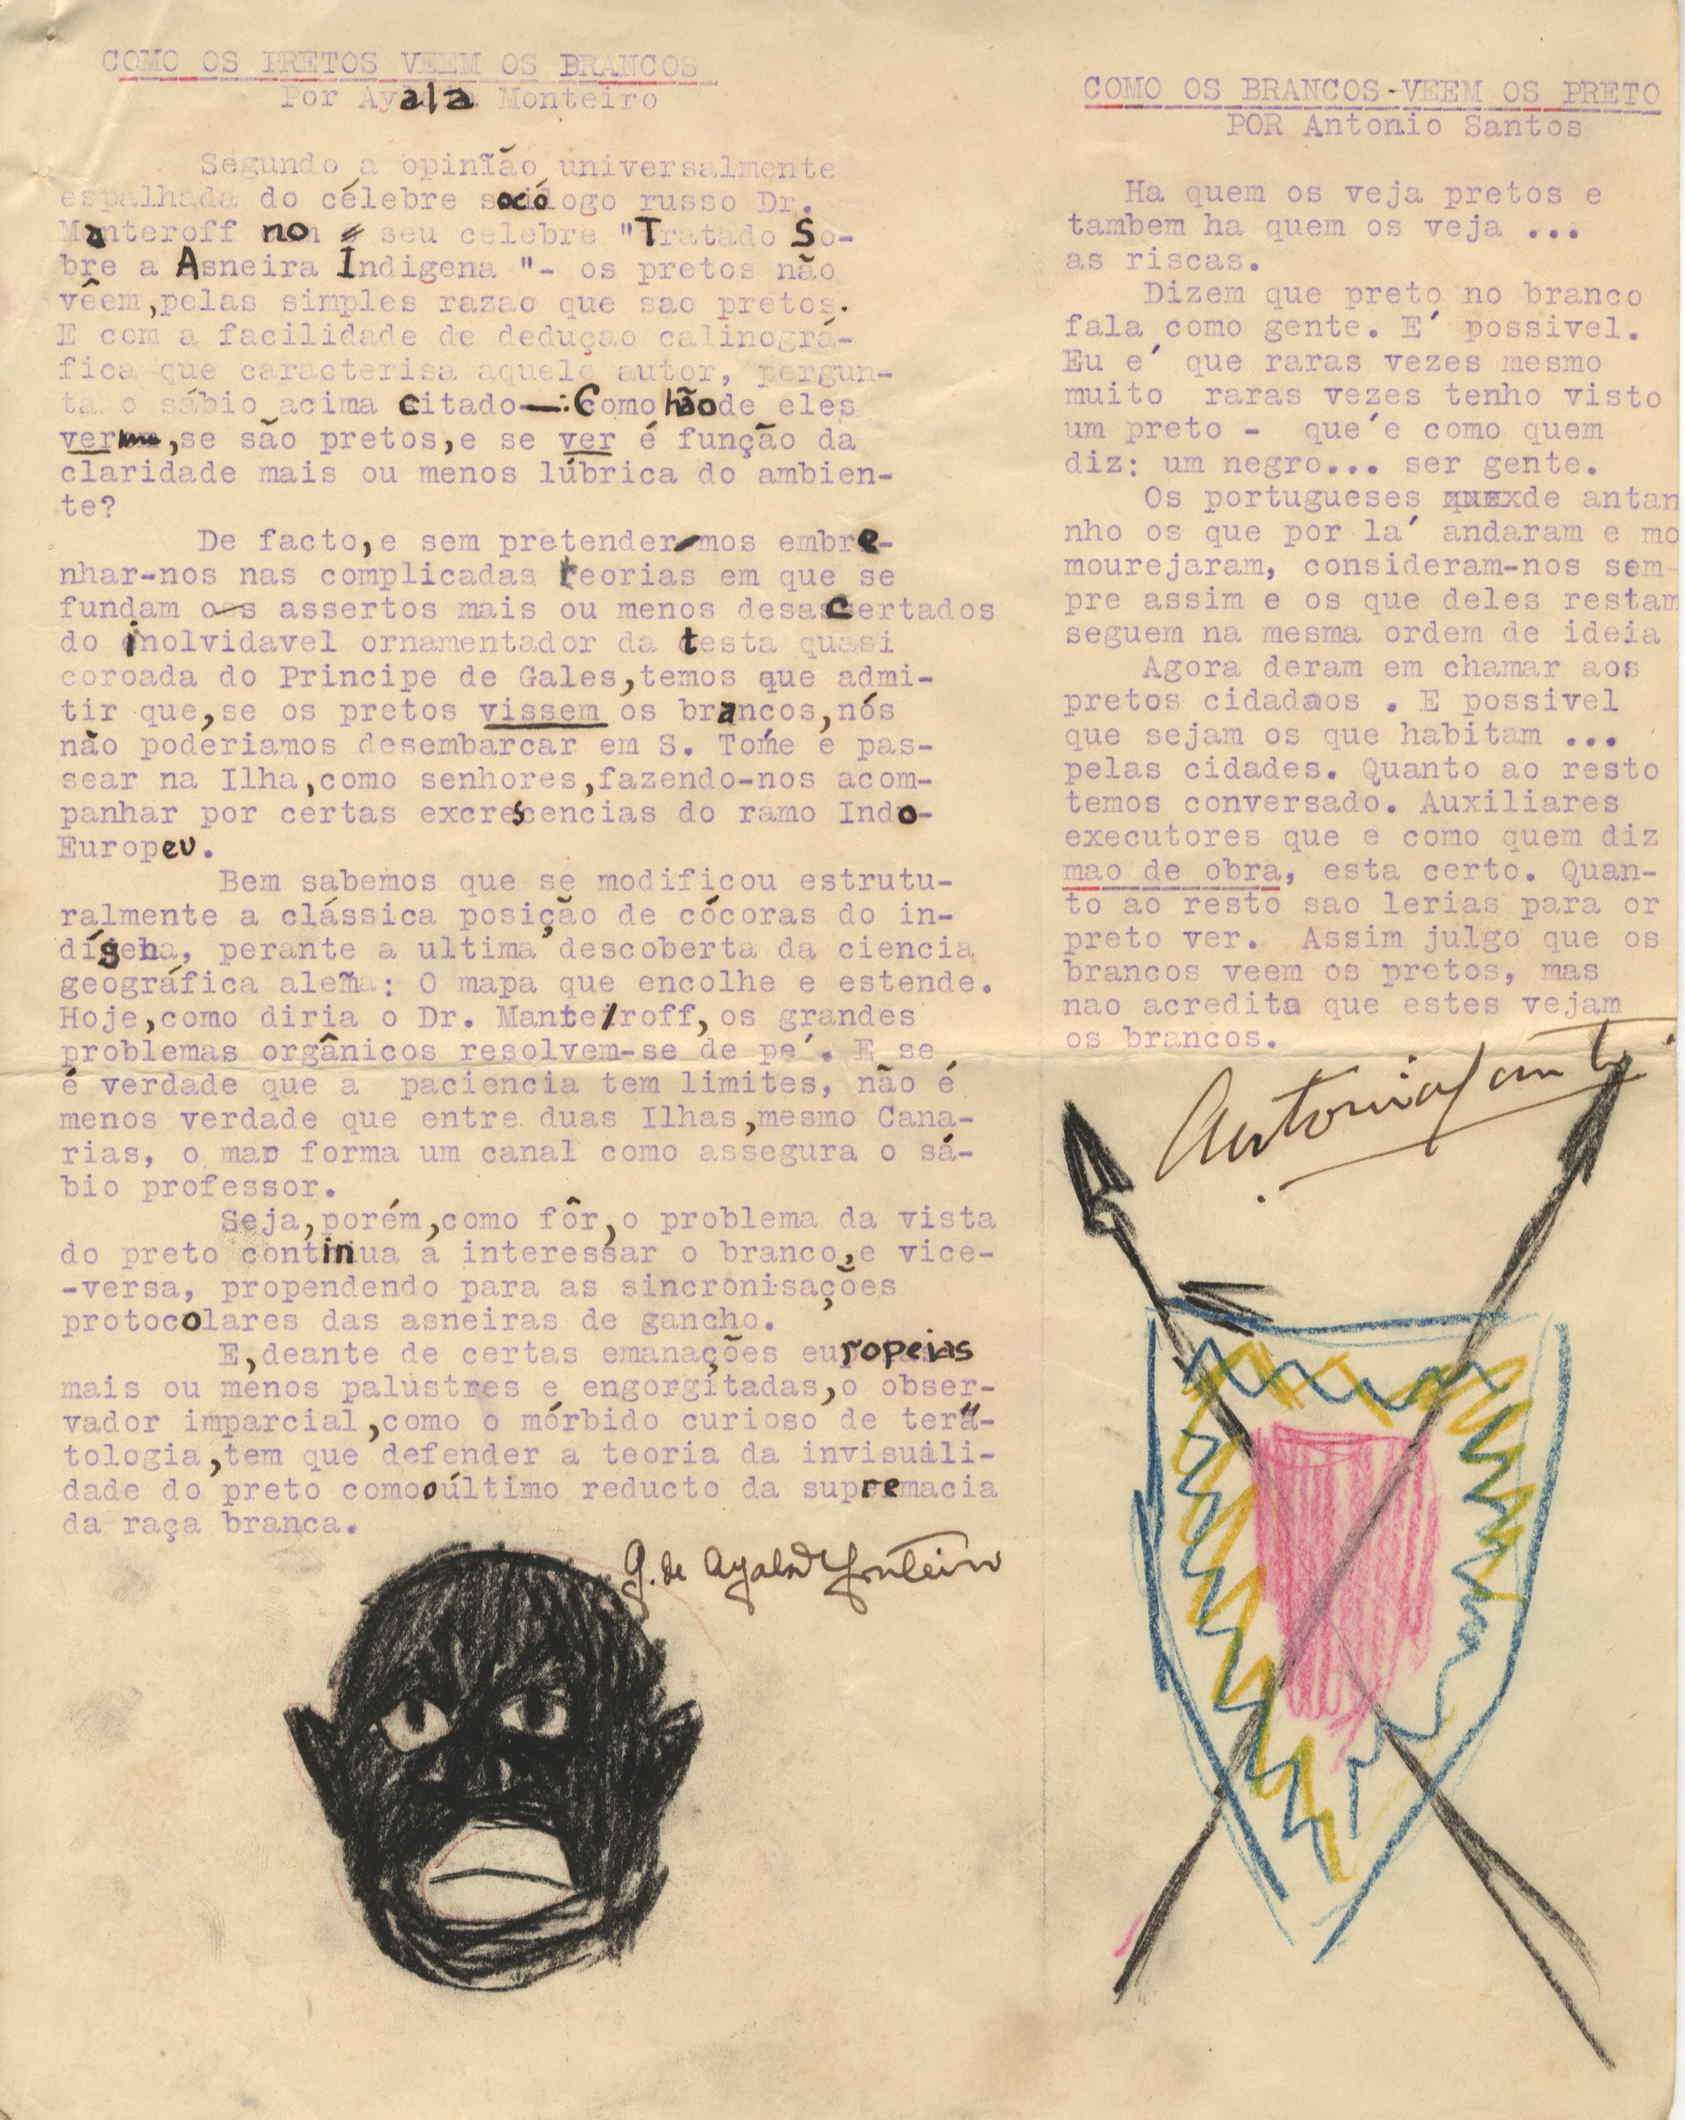 COMO OS PRETOS VEEM OS BRANCOS
Por Ayala Monteiro
Segundo a opinião universalmente
espalhada do célebre sociólogo russo Dr.
Manteroff no seu celebre "Tratado So-
bre a Asneira Indigena "- os pretos não
vêem,pelas simples razao que sao pretos.
E com a facilidade de dedução calinográ-
fica que caracterisa aquele autor, pergun-
ta o sábio acima citado—:Como hãode eles
ver,se são pretos,e se ver é função da
claridade mais ou menos lúbrica do ambien-
te?
De facto,e sem pretendermos embre-
nhar-nos nas complicadas teorias em que se
fundam os assertos mais ou menos desacertados
do inolvidavel ornamentador da testa quasi
coroada do Principe de Gales,temos que admi-
tir que,se os pretos vissem os brancos,nós
não poderiamos desembarcar em S. Tomé e pas-
sear na Ilha,como senhores,fazendo-nos acom-
panhar por certas excrescencias do ramo Indo-
Europeu.
Bem sabemos que se modificou estrutu-
ralmente a clássica posição de cócoras do in-
dígena, perante a ultima descoberta da ciencia
geográfica alemã: O mapa que encolhe e estende.
Hoje,como diria o Dr. Manteroff,os grandes
problemas orgânicos resolvem-se de pe´. E se
é verdade que a paciencia tem limites, não é
menos verdade que entre duas Ilhas,mesmo Cana-
rias, o mar forma um canal como assegura o sá-
bio professor.
Seja,porém,como fôr,o problema da vista
do preto continua a interessar o branco,e vice-
-versa, propendendo para as sincronisações
protocolares das asneiras de gancho.
E,deante de certas emanações europeias
mais ou menos palustres e engorgitadas,o obser-
vador imparcial,como o mórbido curioso de tera-
tologia,tem que defender a teoria da invisuali-
dade do preto como o último reducto da supremacia
da raça branca.
G. de Ayala Monteiro
COMO OS BRANCOS-VEEM OS PRETO
POR Antonio Santos
Ha quem os veja pretos e
tambem ha quem os veja ...
as riscas.
Dizem que preto no branco
fala como gente. E´ possivel.
Eu e´ que raras vezes mesmo
muito raras vezes tenho visto
um preto - que´e como quem
diz: um negro... ser gente.
Os portugueses quexde antan
nho os que por la´ andaram e mo
mourejaram, consideram-nos sem-
pre assim e os que deles restam
seguem na mesma ordem de ideia
Agora deram em chamar aos
pretos cidadaos . E possivel
que sejam os que habitam ...
pelas cidades. Quanto ao resto
temos conversado. Auxiliares
executores que e como quem diz
mao de obra, esta certo. Quan-
to ao resto sao lerias para or
preto ver. Assim julgo que os
brancos veem os pretos, mas
nao acredita que estes vejam
os brancos.
Antonio Santos